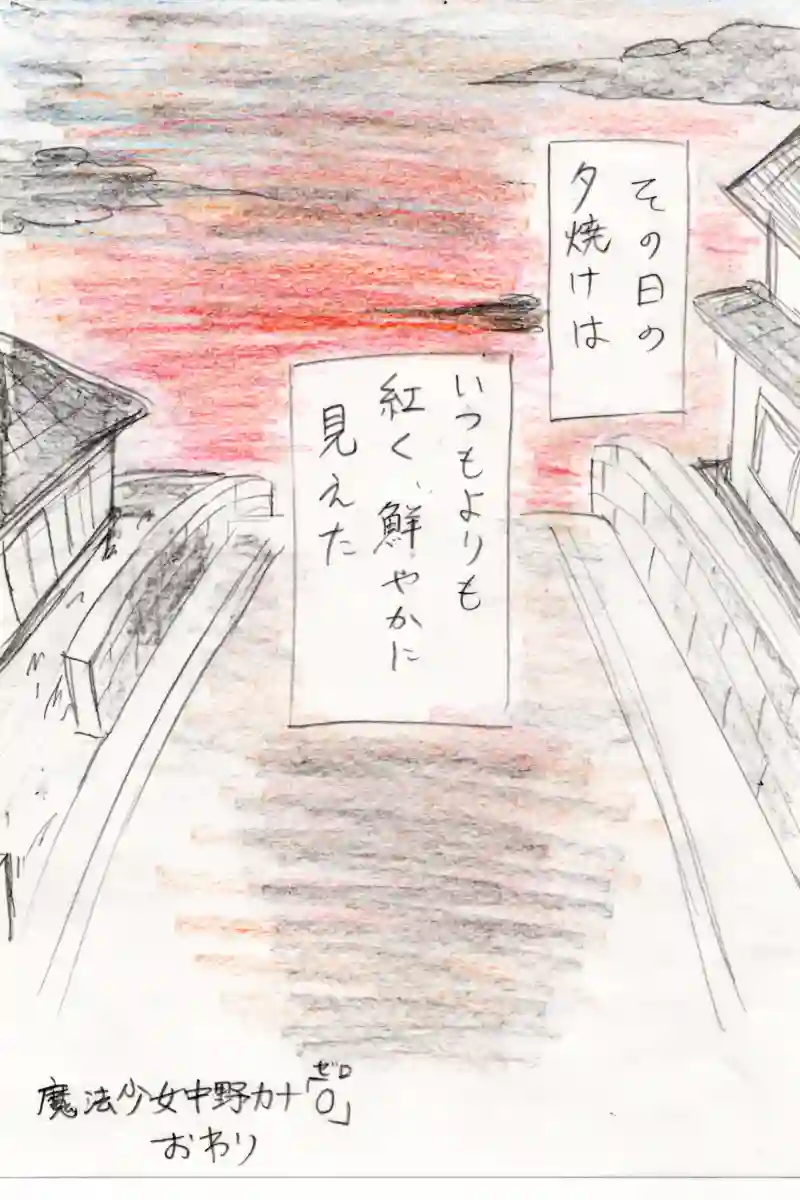 その日の
夕焼けは
いつもよりも
紅く、鮮やかに
見えた
ゼロ
魔法少女中野カナ「0」
おわり